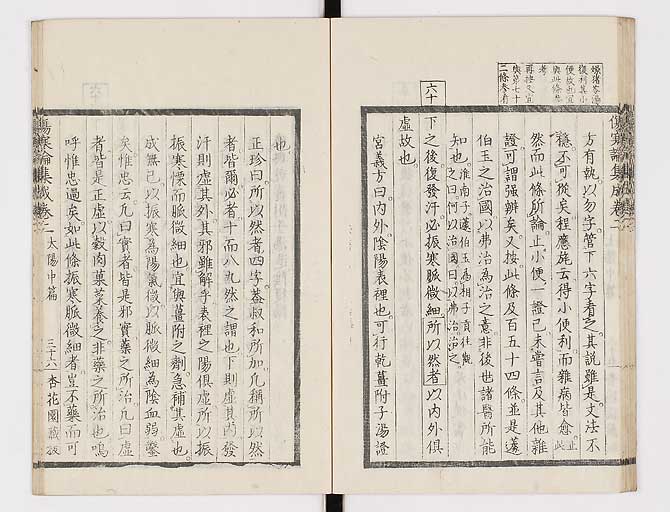 嫌猪苓湯
復利其小
便故也宜
與此條參
考
再按又宜
與第七十
二條參看
六十
方有執以勿字管下六字看之其説雖是文法不
穩不可從矣程應旄云得小便利而雜病皆愈止此
然而此條所論止小便一證已未嘗言及其他雜
證可謂強辨矣又按此條及百五十四條並是蘧
伯玉之治國以弗治為治之意非後也諸醫所能
知也淮南子蘧伯玉為相子貢往觀之曰何以治國曰以弗治治之
下之後復發汗必振寒脈微細所以然者以内外俱
虛故也
宮義方曰内外陰陽表裡也可行乾薑附子湯證
也
正珍曰所以然者四字蓋叔和所加凡稱所以然
者皆爾必者十而八九然之謂也下則虛其内發
汗則虛其外其邪雖解乎表裡之陽俱虛所以振
振寒慄而脈微細也宜與薑附之劑急補其虛也
成無已以振寒為陽氣微以脈微細為陰血弱鑿
矣惟忠云凡曰實者皆是邪實藥之所治凡曰虛
者皆是正虛以穀肉菓菜養之非藥之所治也嗚
呼惟忠過矣如此條振寒脈微細者豈不藥而可
傷寒論集成卷二 太陽中篇 三十六 杏花園藏板